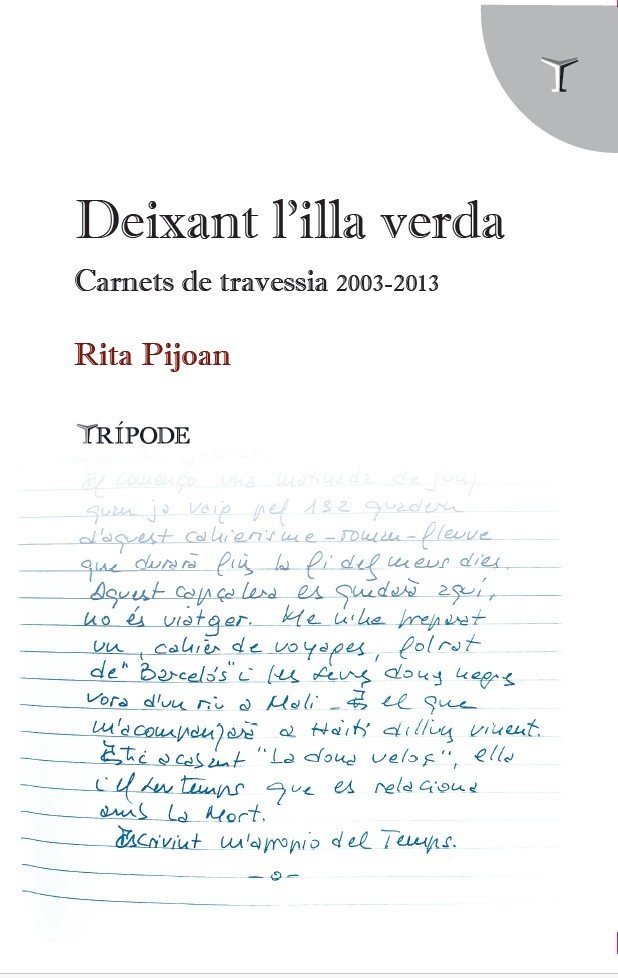 Deixant l'illa verda
Carnets de travessia 2003-2013
Rita Pijoan
TRÍPODE
El començo una matinada de juny
quan ja vaig pel 132 quadern
d'aquest cahierisme-roman-fleuve
que durarà fins la fi dels meus dies.
Aquest capçalera es quedarà aquí,
no és viatger. Me n'he preparat
un, cahier de voyages, folrat
de "Barceló's" i les seves dones negres
vora d'un riu a Mali - És el que
m'acompanyarà a Haití dilluns vinent.
Estic acabant "La dona veloç", ella
i el seu temps que es relaciona
amb la Mort.
Escrivint m'apropio del Temps.